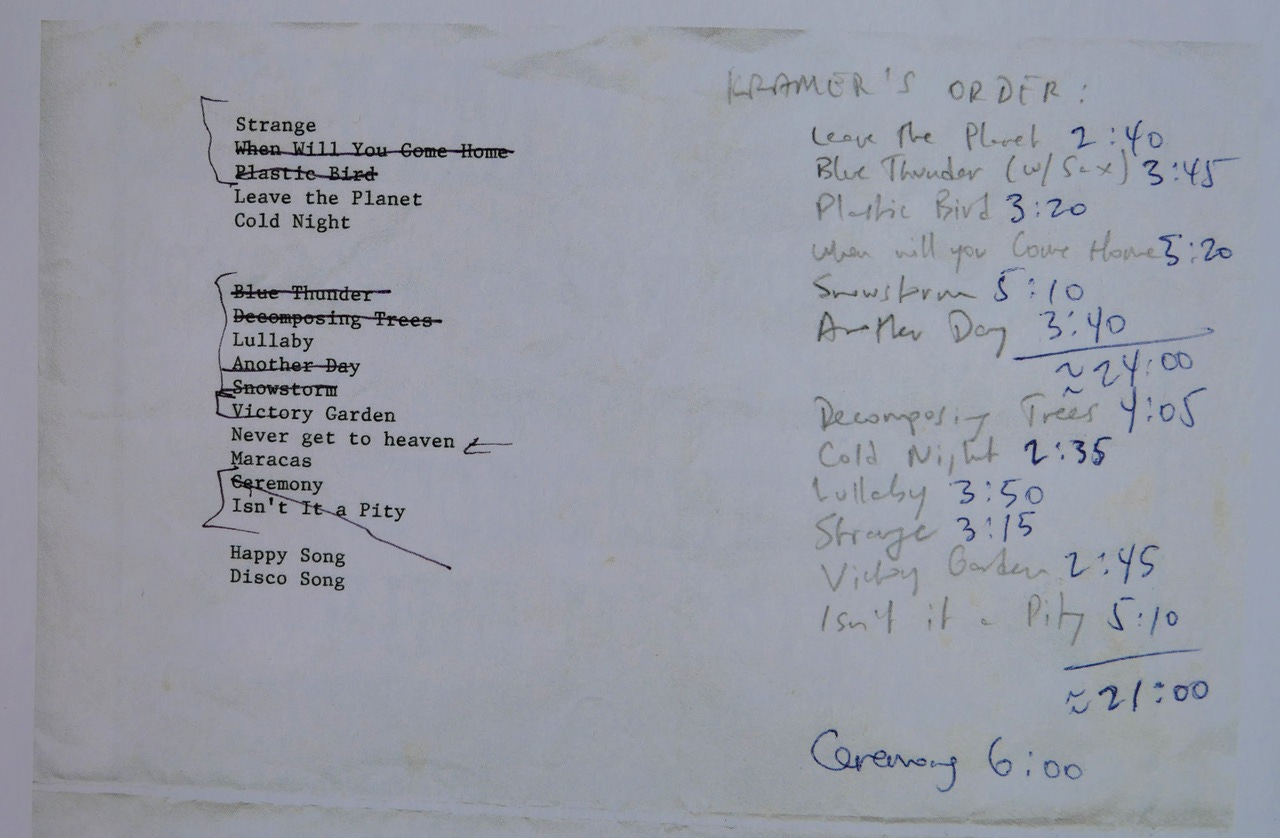 Strange
When Will You Come Home
Plastic Bird
Leave the Planet
Cold Night
Blue Thunder
Decomposing Trees
Lullaby
Another Day
Snowstorm
Victory Garden
Never get to heaven
Maracas
Ceremony
Isn't It a Pity
Happy Song
Disco Song
KRAMER'S ORDER:
Leave the Planet 2:40
Blue Thunder (w/ Sax) 3:45
Plastic Bird 3:20
When will you Come Home 5:20
Snowstorm 5:10
Another Day 3:40
≈ 24:00
Decomposing Trees 4:05
Cold Night 2:35
Lullaby 3:50
Strange 3:15
Victory Garden 2:45
Isn't it a Pity 5:10
≈ 21:00
Ceremony 6:00